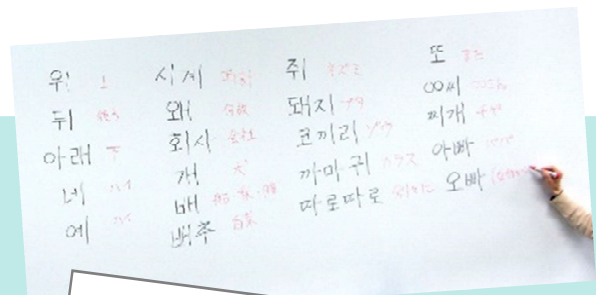 위 上
뒤 後ろ
아래 下
네 ハイ
예 ハイ
시계 時計
왜 何故
회사 会社
개 犬
배
배추 白菜
쥐 ネズミ
돼지 ブタ
코끼리 ゾウ
까마귀 カラス
따로따로 別々に
또 また
○○씨 ○○さん
찌개 チゲ
아빠 パパ
오빠